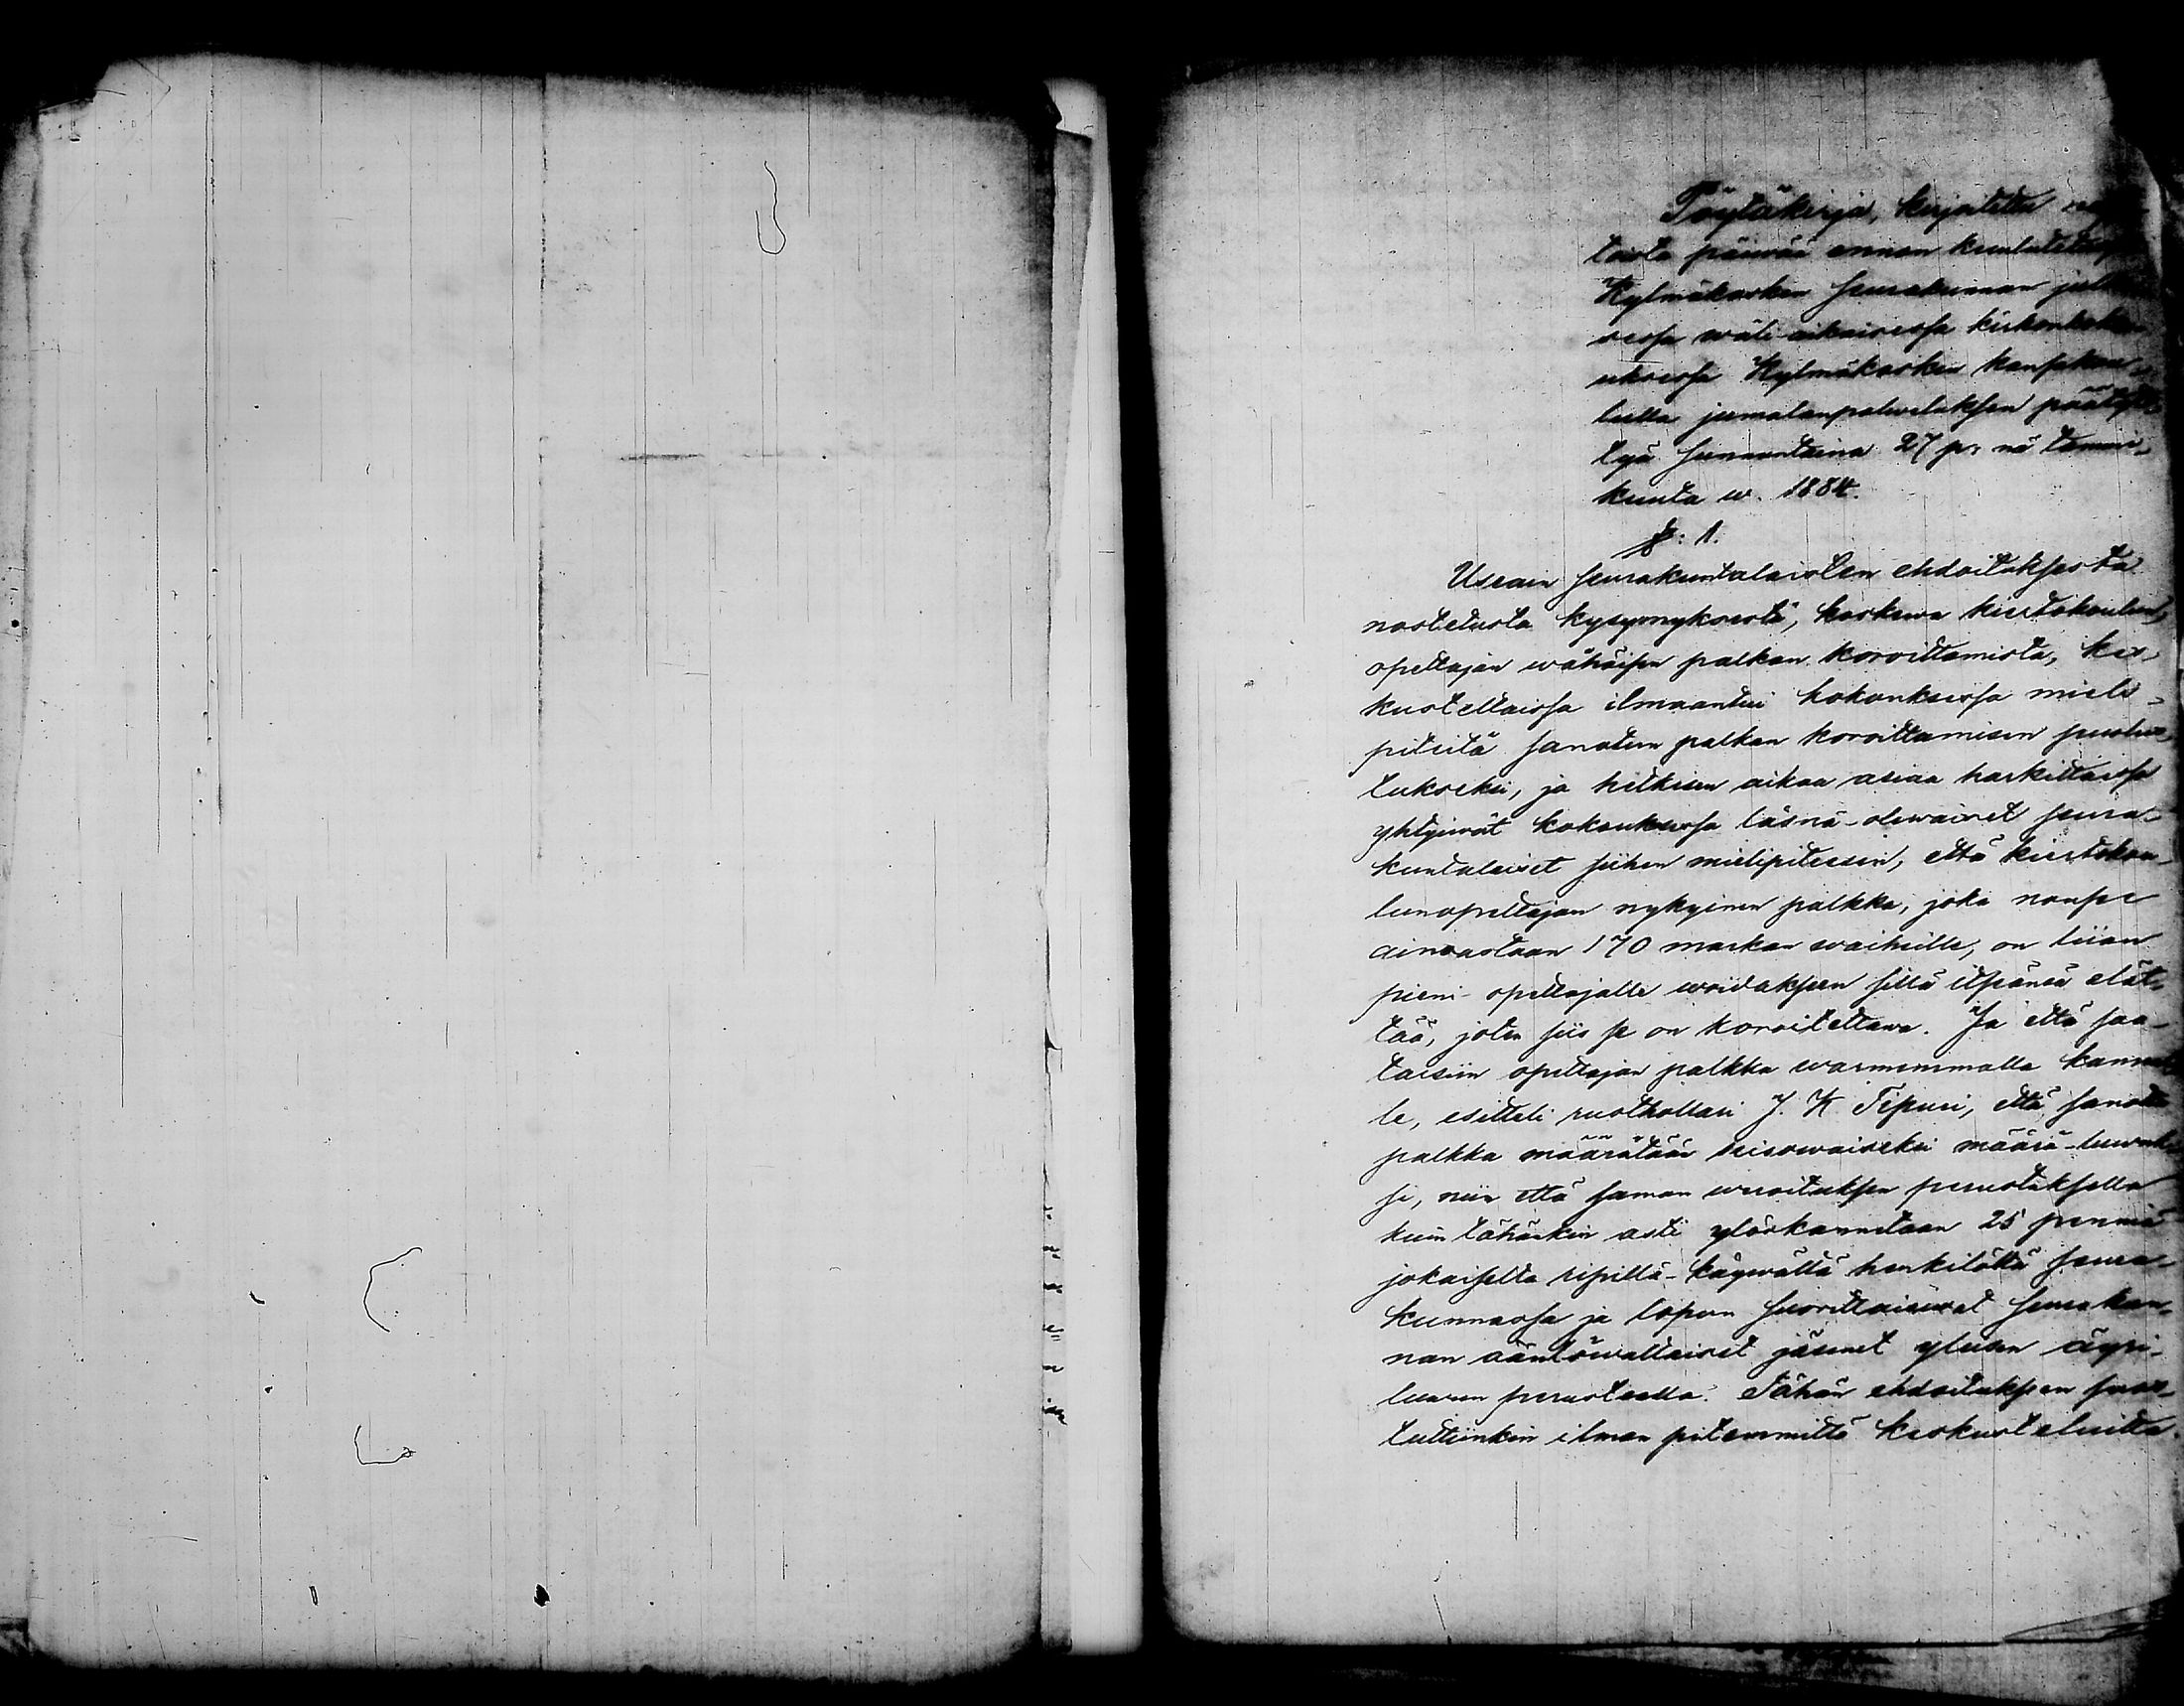 Pöytäkirja, kirjoitettu
toista päiwää ennen kuulutetussa
Kylmäkosken seurakunnan julki
sessa wäli-aikaisessa kirkonkoko
uksessa Kylmäkosken kansakou-
lulla jumalanpalweluksen päätyt
tyä sunnuntaina 27 p:nä tammi-
kuuta w. 1884.
§: 1.
Useain seurakuntalaisten ehdoituksesta
nostetusta kysymyksestä, koskewa kiertokoulun-
opettajan wähäisen palkan koroittamista, kes-
kusteltaissa ilmaantui kokouksessa mieli-
piteitä sanotun palkan koroittamisen puolus-
tukseksi, ja hetkisen aikaa asiaa harkittaissa
yhtyiwät kokouksessa läsnä-olewaiset seura-
kuntalaiset siihen mielipiteesen, että kiertokou-
lunopettajan nykyinen palkka, joka nousee
ainoastaan 170 markan waiheille, on liian
pieni opettajalle woidaksen sillä itseänsä elät-
tää, joten siis se on koroitettawa. Ja että saa-
taisiin opettajan palkka warmemmalla kannal-
le, esitteli rusthollari J. K. Sipuri, että sanottu
palkka määrätään seisowaiseksi määrä-luwuk
si, niin että saman weroituksen perustuksella
kuin tähänkin asti ylöskannetaan 25 penniä
jokaiselta ripillä-käywältä henkilöltä seura-
kunnassa ja lopun suorittaisiwat seurakun-
nan ääntöwaltaiset jäsenet yleisen äyri-
luwun perusteella. Tähän ehdoituksen suos-
tuttiinkin ilman pitemmittä keskusteluitta.